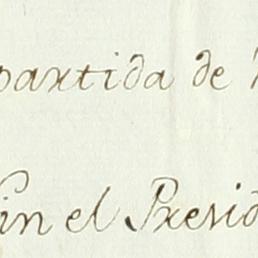 partida de
in el Presid